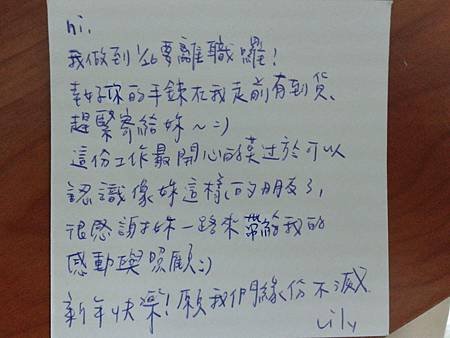 hi.
我做到1/26要離職囉!
幸好你的手鍊在我走前有到貨、
趕緊寄給妳~:)
這份工作最開心的莫過於可以
認識像妳這樣的朋友了,
很感謝妳一路來帶給我的
感動與照顧:)
新年快樂!願我們緣份不滅
Lily